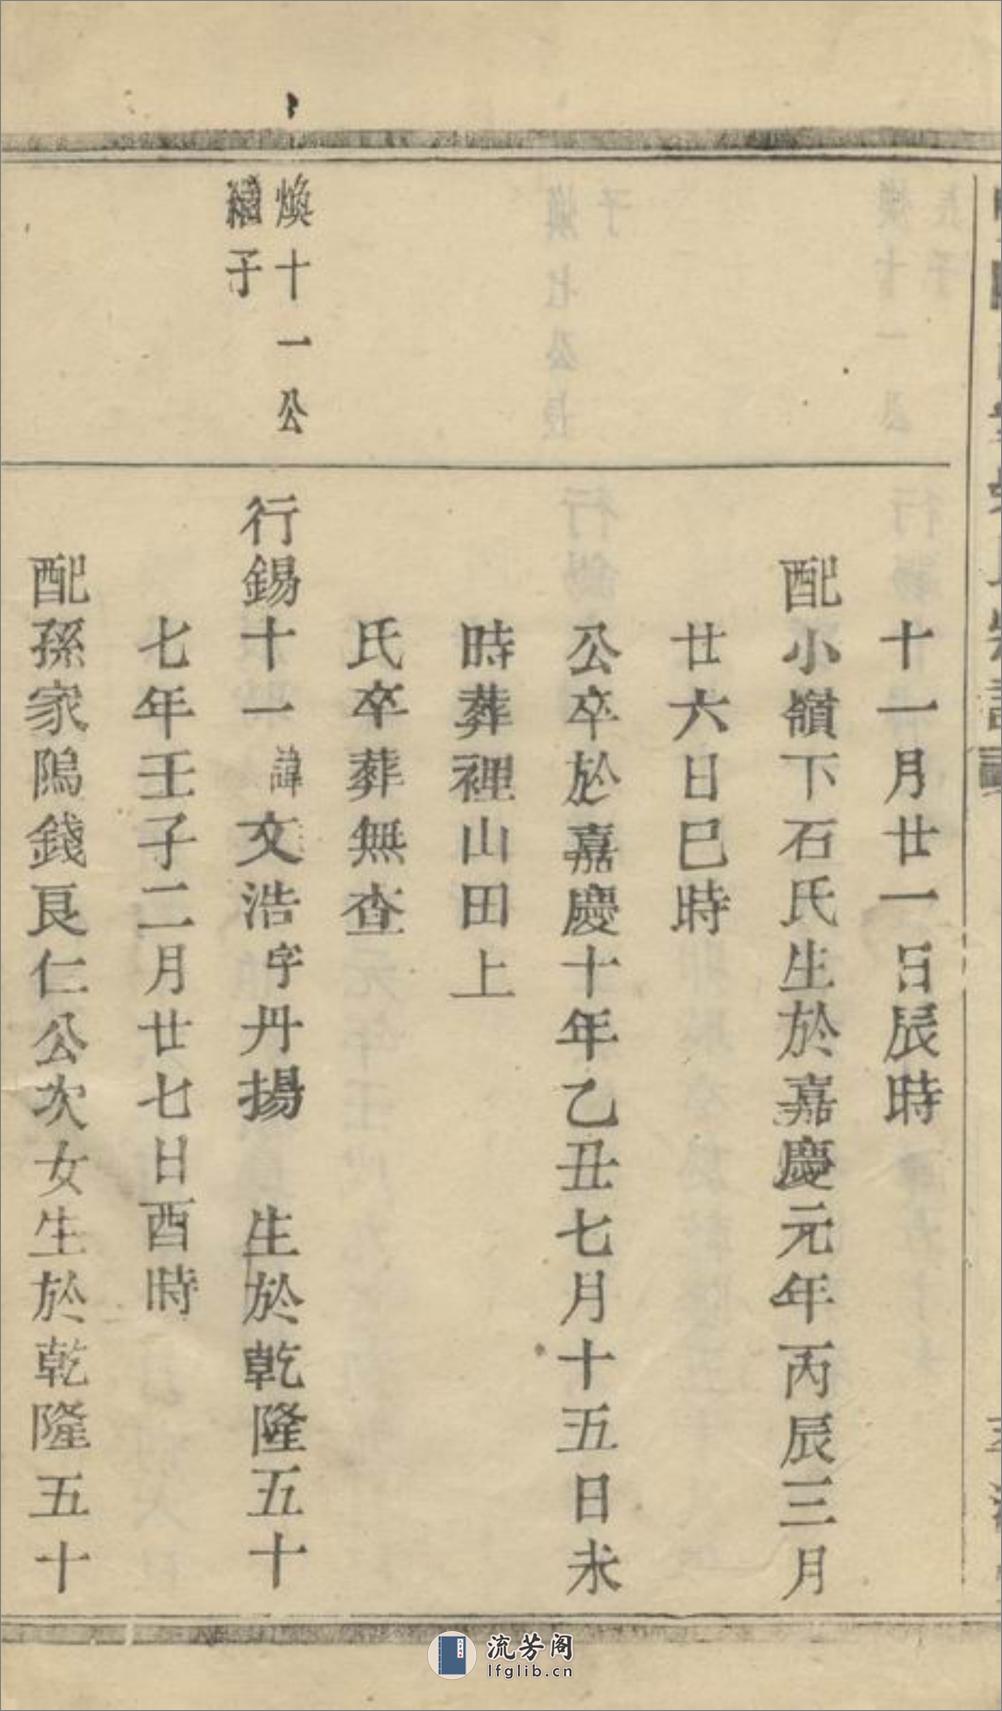 十一月廿一日辰時
配小嶺下石氏生於嘉慶元年丙辰三月
廿六日巳時
公卒於嘉慶十年乙丑七月十五日未
時葬裡山田上
氏卒葬無查
煥十一公
繼子
行錫十一諱文浩字丹揚 生於乾隆五十
七年壬子二月廿七日酉時
配孫家隖錢良仁公次女生於乾隆五十
流芳阁
lfglib.cn